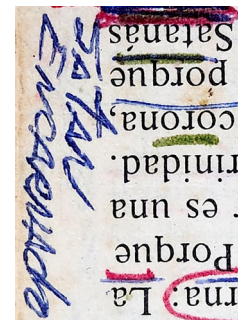 rna: La
Porque
es una
rinidad.
corona,
porque
Satanás
Satan
Encarnado